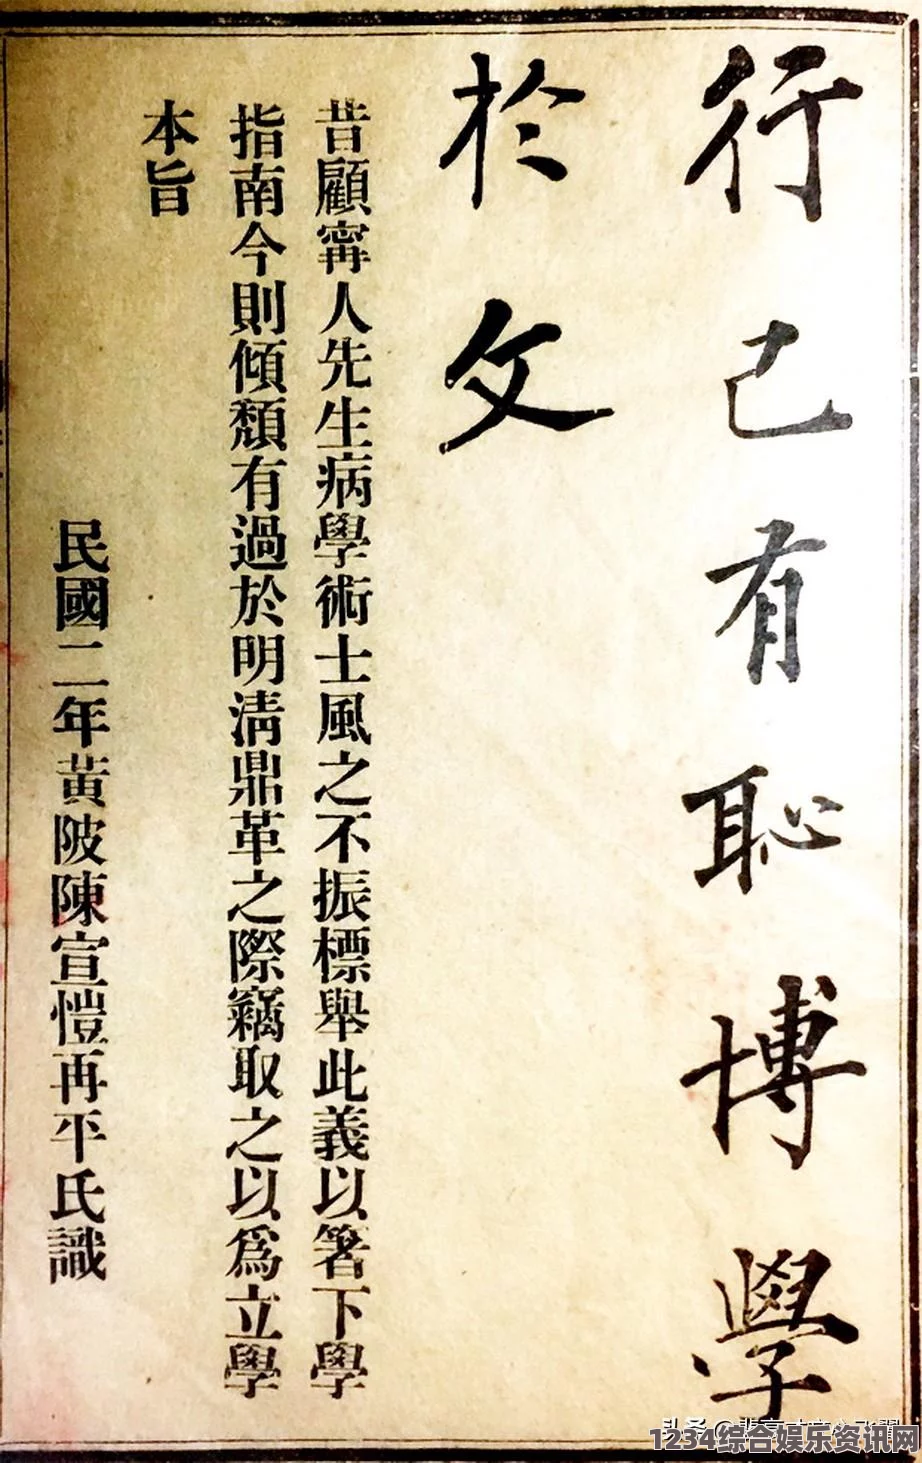 行己有恥博學
於文
昔顧甯人先生病學術士風之不振標舉此義以箸下學
指南今則傾頹有過於明淸鼎革之際竊取之以爲立學
本旨
民國二年黃陂陳宣愷再平氏識
1234综合娱乐资讯网